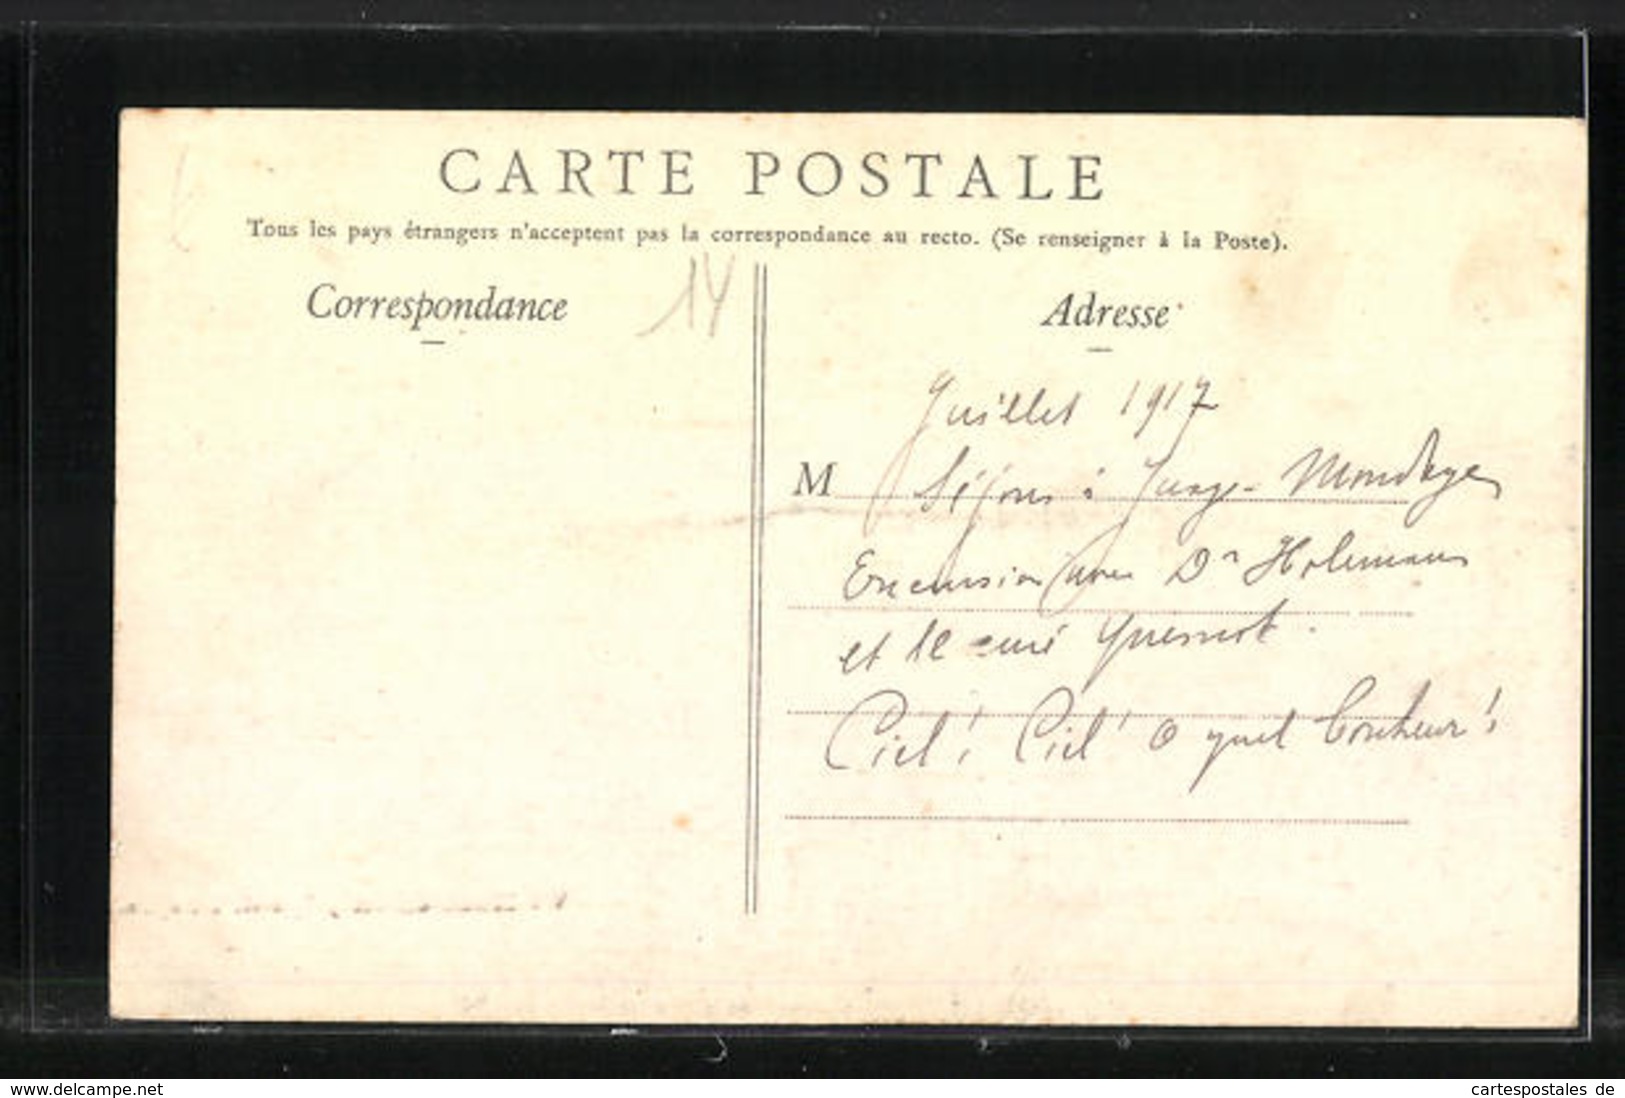 CARTE POSTALE
Tous les pays étrangers n'acceptent pas la correspondance au recto. (Se renseigner à la Poste).
Correspondance
14
Adresse
Juillet 1917
M
Séjour à Juaye-Mondaye
Excursion avec Dr Holemans
et le curé Quesnot.
Ciel! Ciel! O quel bonheur!
www.delcampe.net
cartespostales de